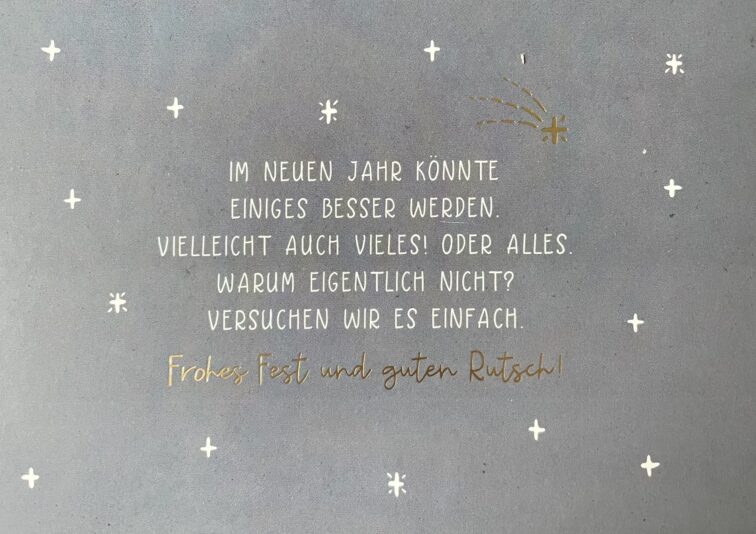 IM NEUEN JAHR KÖNNTE
EINIGES BESSER WERDEN.
VIELLEICHT AUCH VIELES! ODER ALLES.
WARUM EIGENTLICH NICHT?
VERSUCHEN WIR ES EINFACH.
Frohes Fest und guten Rutsch!